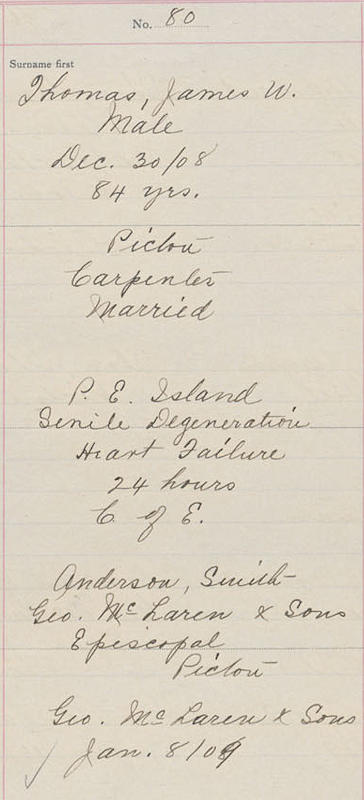 No. 80
Surname first
Thomas, James W.
Male
Dec. 30/08
84 yrs.
Pictou
Carpenter
Married
P. E. Island
Senile Degeneration
Heart Failure
24 hours
C of E.
Anderson, Smith
Geo. McLaren & Sons
Episcopal
Pictou
Geo. McLaren & Sons
Jan. 8/09